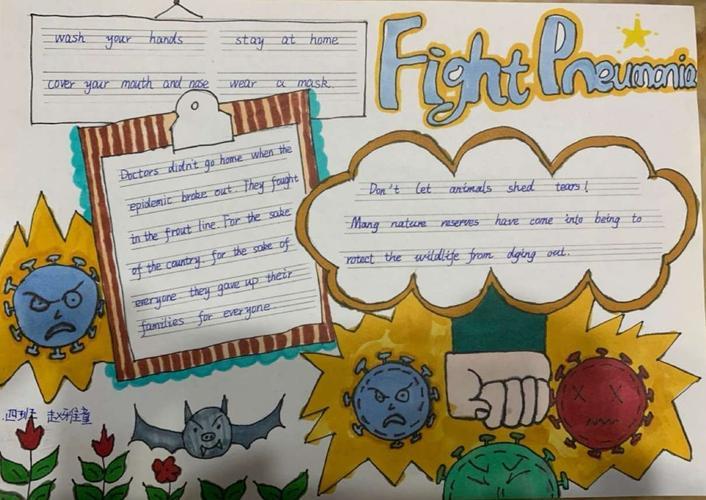 wash your hands stay at home
cover your mouth and nose wear a mask.
Fight Pneumonia
Doctors didn't go home when the
epidemic broke out. They fought
in the frout line. For the sake
of the country. for the sake of
everyone they gave up their
families for everyone
Don't let animals shed tears!
Mang nature reserves have come into being to
rotect the wildlife from dging out.
四班 赵雅童